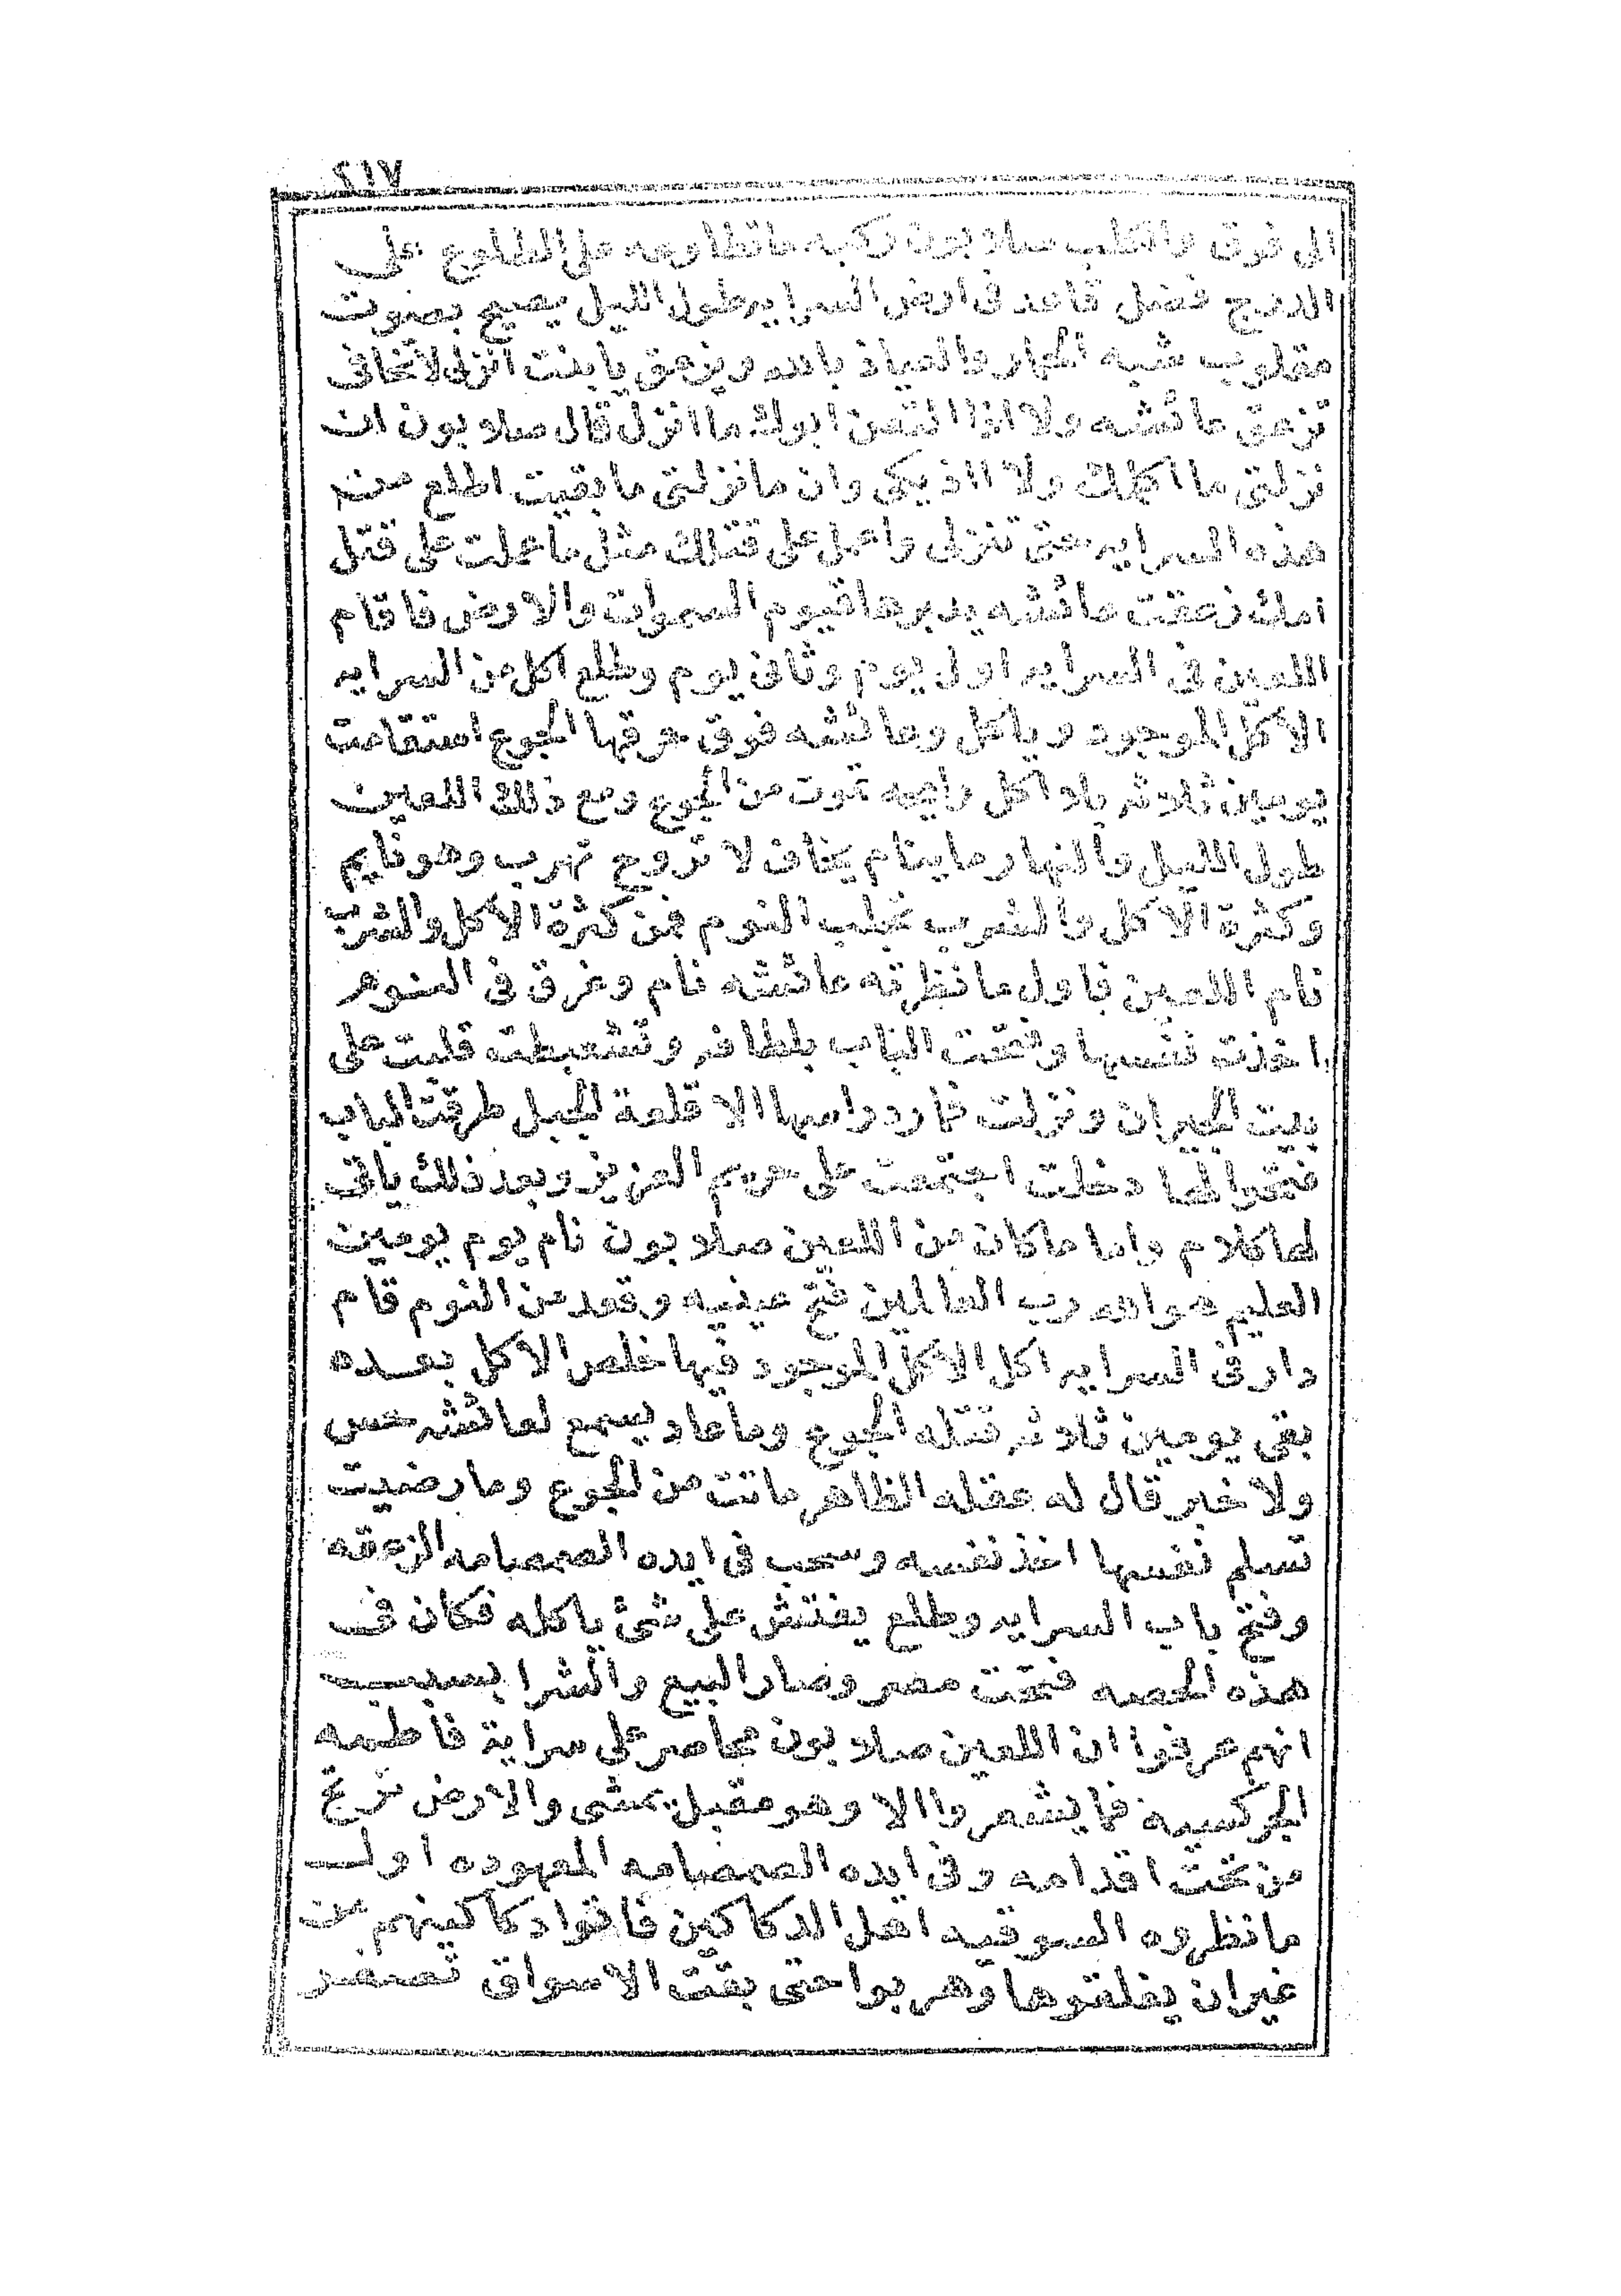 ٤١٧
الى فوق والكلب صلابون ركبه ما تطاوعه على الطلوع على
الدرج فضل قاعد فى ارض السرايه طول الليل يصيح بصوت
مقلوب شبه الحمار والعياذ بالله ويزعق يا بنت انزلى لا تخافى
تزعق عائشه ولا اذا التعن ابوك ما انزل قال صلابون ان
نزلتى ما اكلك ولا ااذيكى وان ما نزلتى ما بقيت اطلع من
هذه السرايه حتى تنزلى واعمل على قتلك مثل ما عملت على قتل
امك زعقت عائشه يدبرها قيوم السموات والارض فاقام
اللعين فى السرايه اول يوم وثانى يوم وطلع اكل من السرايه
الاكل الموجود وياكل وعائشه فوق حرقها الجوع استقامت
يومين ثلاثه بلا اكل رايحه تموت من الجوع ومع ذلك اللعين
طول الليل والنهار ما ينام يخاف لا تروح تهرب وهو نايم
وكثرة الاكل والشرب تجلب النوم فمن كثرة الاكل والشرب
نام اللعين فاول ما نظرته عائشه نام وغرق فى النوم
اخذت نفسها وفتحت الباب بلطافه وتشعبطت قلبت على
بيت الجيران ونزلت فما رد راسها الا قلعة الجبل طرقت الباب
فتحوا لها دخلت اجتمعت على حريم العزيز وبعد ذلك ياتى
لها كلام واما ما كان من اللعين صلابون نام يوم يومين
العليم هو الله رب العالمين فتح عينيه وقعد من النوم قام
دار فى السرايه اكل الاكل الموجود فيها خلص الاكل بعده
بقى يومين ثلاثه قتله الجوع وما عاد يسمع لعائشه حس
ولا خبر قال له عقله الظاهر ماتت من الجوع وما رضيت
تسلم نفسها اخذ نفسه وسحب فى ايده الصمصامه الزعقه
وفتح باب السرايه وطلع يفتش على شئ ياكله فكان فى
هذه الحصه فتحت مصر وصار البيع والشرا بسبب
انهم عرفوا ان اللعين صلابون محاصر على سراية فاطمه
الجركسيه فما يشعروا الا وهو مقبل يمشى والارض ترتج
من تحت اقدامه وفى ايده الصمصامه المعهوده اول
ما نظروه السوقيه اهل الدكاكين فاتوا دكاكينهم من
غير ان يغلقوها وهربوا حتى بقت الاسواق تصفر